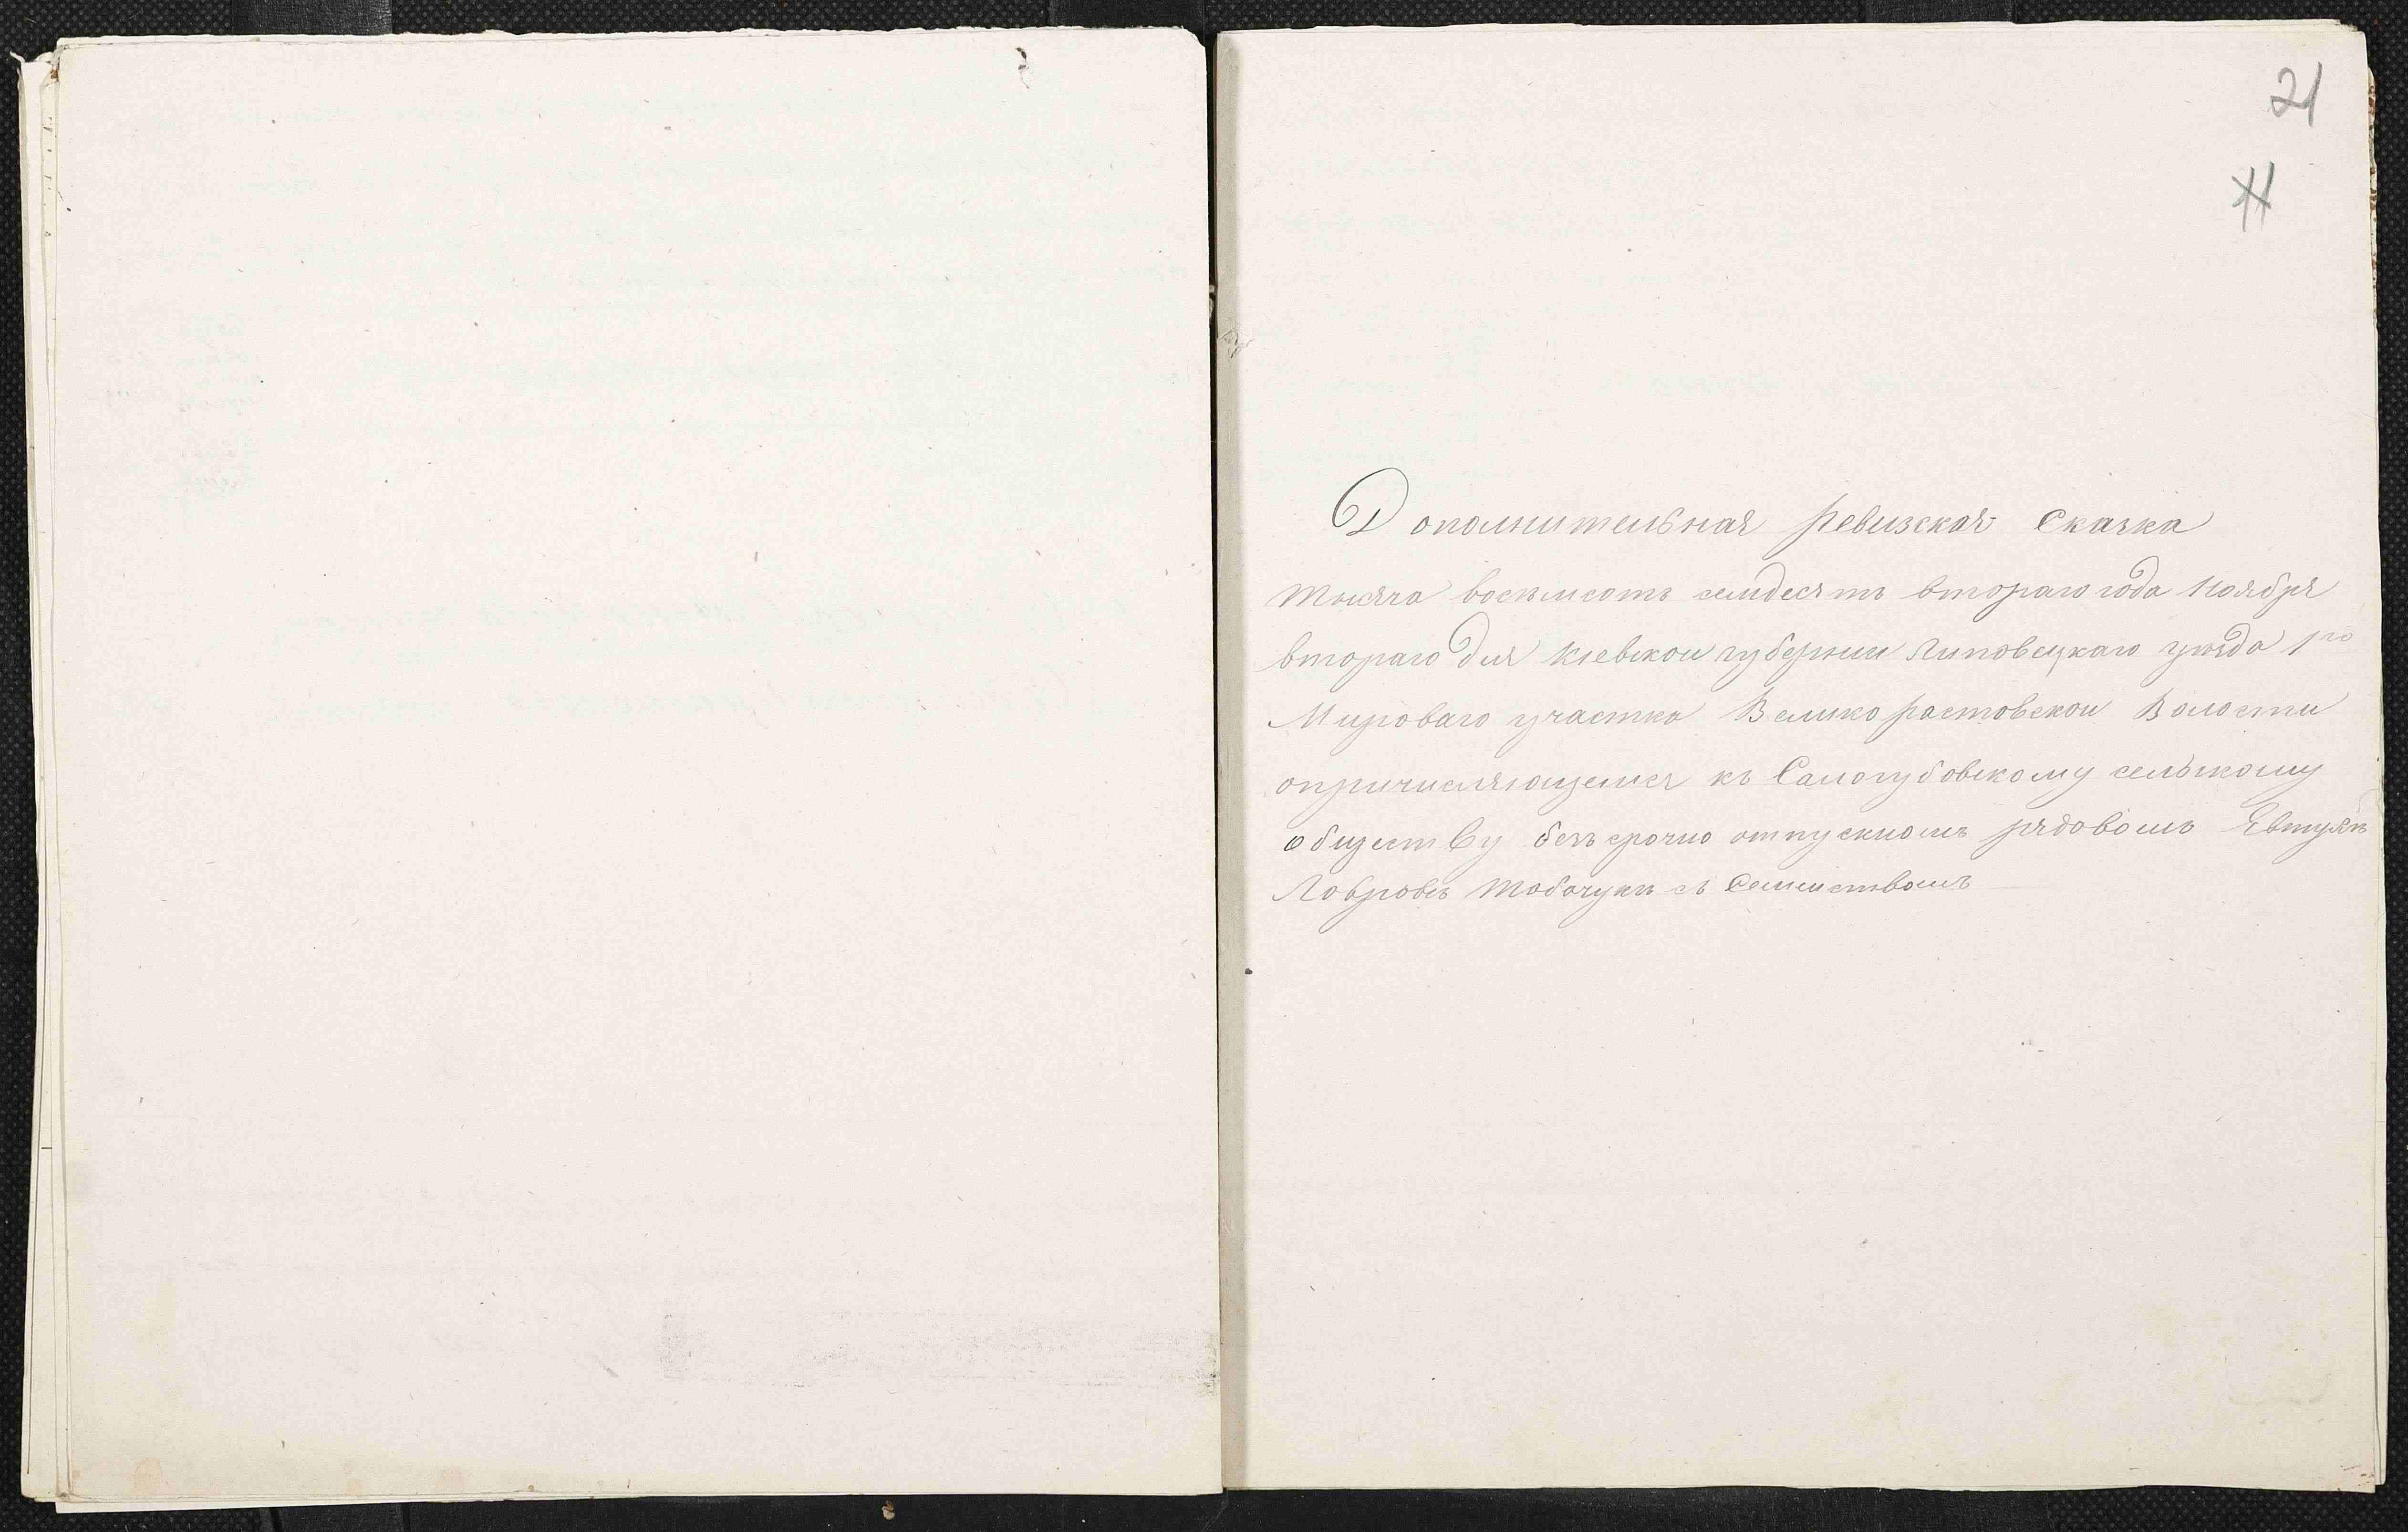 21
Дополнительная ревизская Сказка
Тысяча восемсотъ семдесятъ втораго года Ноября
втораго дня Кіевской губерніи Липовецкаго уѣзда 1го
Мироваго участка Великоростовской Волости
опричисляющемся къ Самогубовскому сельскому
Обществу безъ срочно отпускномъ рядовомъ Явтухѣ
Лавровѣ Табачукѣ съ Семиствомъ